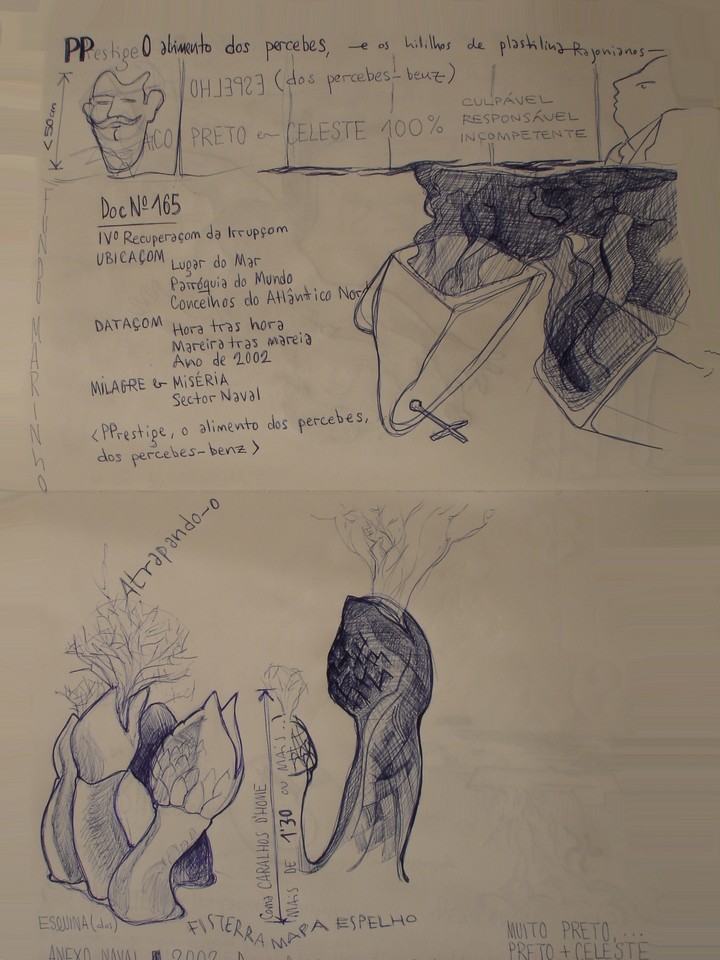 PPrestige O alimento dos percebes, — e os hililhos de plastilina Rajonianos —
< 50 cm
ESPELHO (dos percebes-benz)
PRETO en CELESTE 100%
CULPÁVEL
RESPONSÁVEL
INCOMPETENTE
FUNDO MARINHO
Doc Nº 165
IVº Recuperaçom da Irrupçom
UBICAÇOM Lugar do Mar
Parróquia do Mundo
Concelhos do Atlântico Nord
DATAÇOM Hora tras hora
Mareira tras mareia
Ano de 2002
MILAGRE & MISÉRIA
Sector Naval
<PPrestige, o alimento dos percebes,
dos percebes-benz>
Atrapando-o
Coma CARALHOS D'HOME
MAIS DE 1'30 OU MAIS...!
ESQUINA (dos)
FISTERRA MAPA ESPELHO
MUITO PRETO,...
PRETO + CELESTE
ANEXO NAVAL 2002